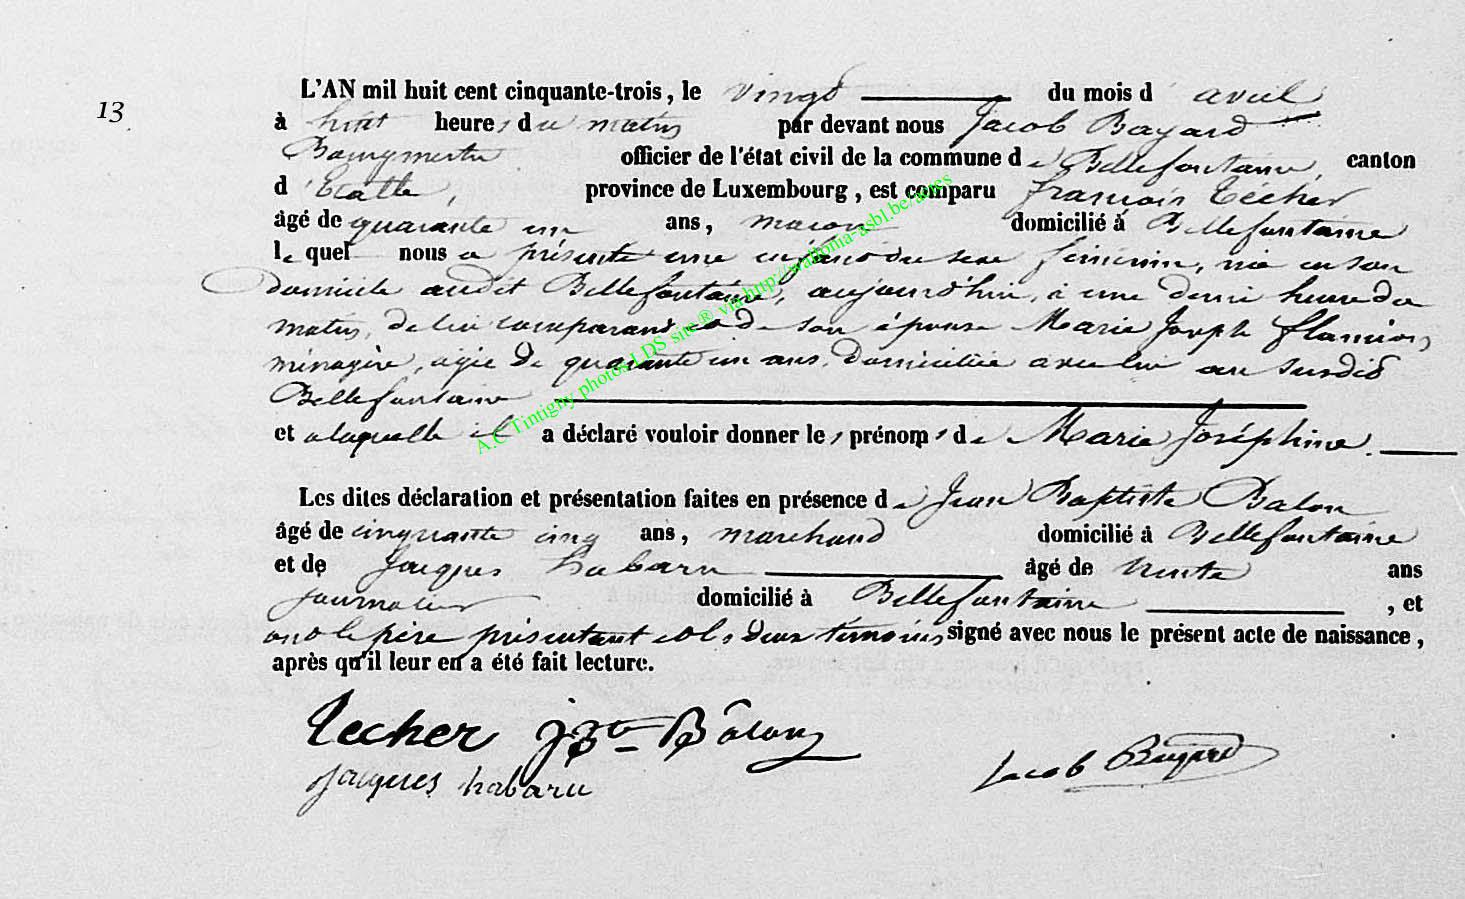 13
L'AN mil huit cent cinquante-trois, le vingt du mois d'avril
à huit heures du matin par devant nous Jacob Bayard
Bourgmestre officier de l'état civil de la commune de Bellefontaine, canton
d'Etalle, province de Luxembourg, est comparu françois Técher
âgé de quarante un ans, maçon domicilié à Bellefontaine
lequel nous a présenté une enfant du sexe féminin, née en son
Domicile audit Bellefontaine, aujourd'hui, à une demi heure du
matin, de lui comparant et de son épouse Marie Joseph flamion,
ménagère, agée de quarante un ans, Domiciliée avec lui au susdit
Bellefontaine
et a laquelle il a déclaré vouloir donner les prénoms de Marie Joséphine.
Les dites déclaration et présentation faites en présence de Jean Baptiste Balon
âgé de cinquante cinq ans, marchand domicilié à Bellefontaine
et de Jacques habaru âgé de trente ans
journalier domicilié à Bellefontaine, et
ont le père présentant et les deux témoins signé avec nous le présent acte de naissance,
après qu'il leur en a été fait lecture.
Techer JBte Bâlon
Jacques habaru Jacob Bayard
A.C Tintigny photos LDS site® via http://wallonia-asbl.be/actes